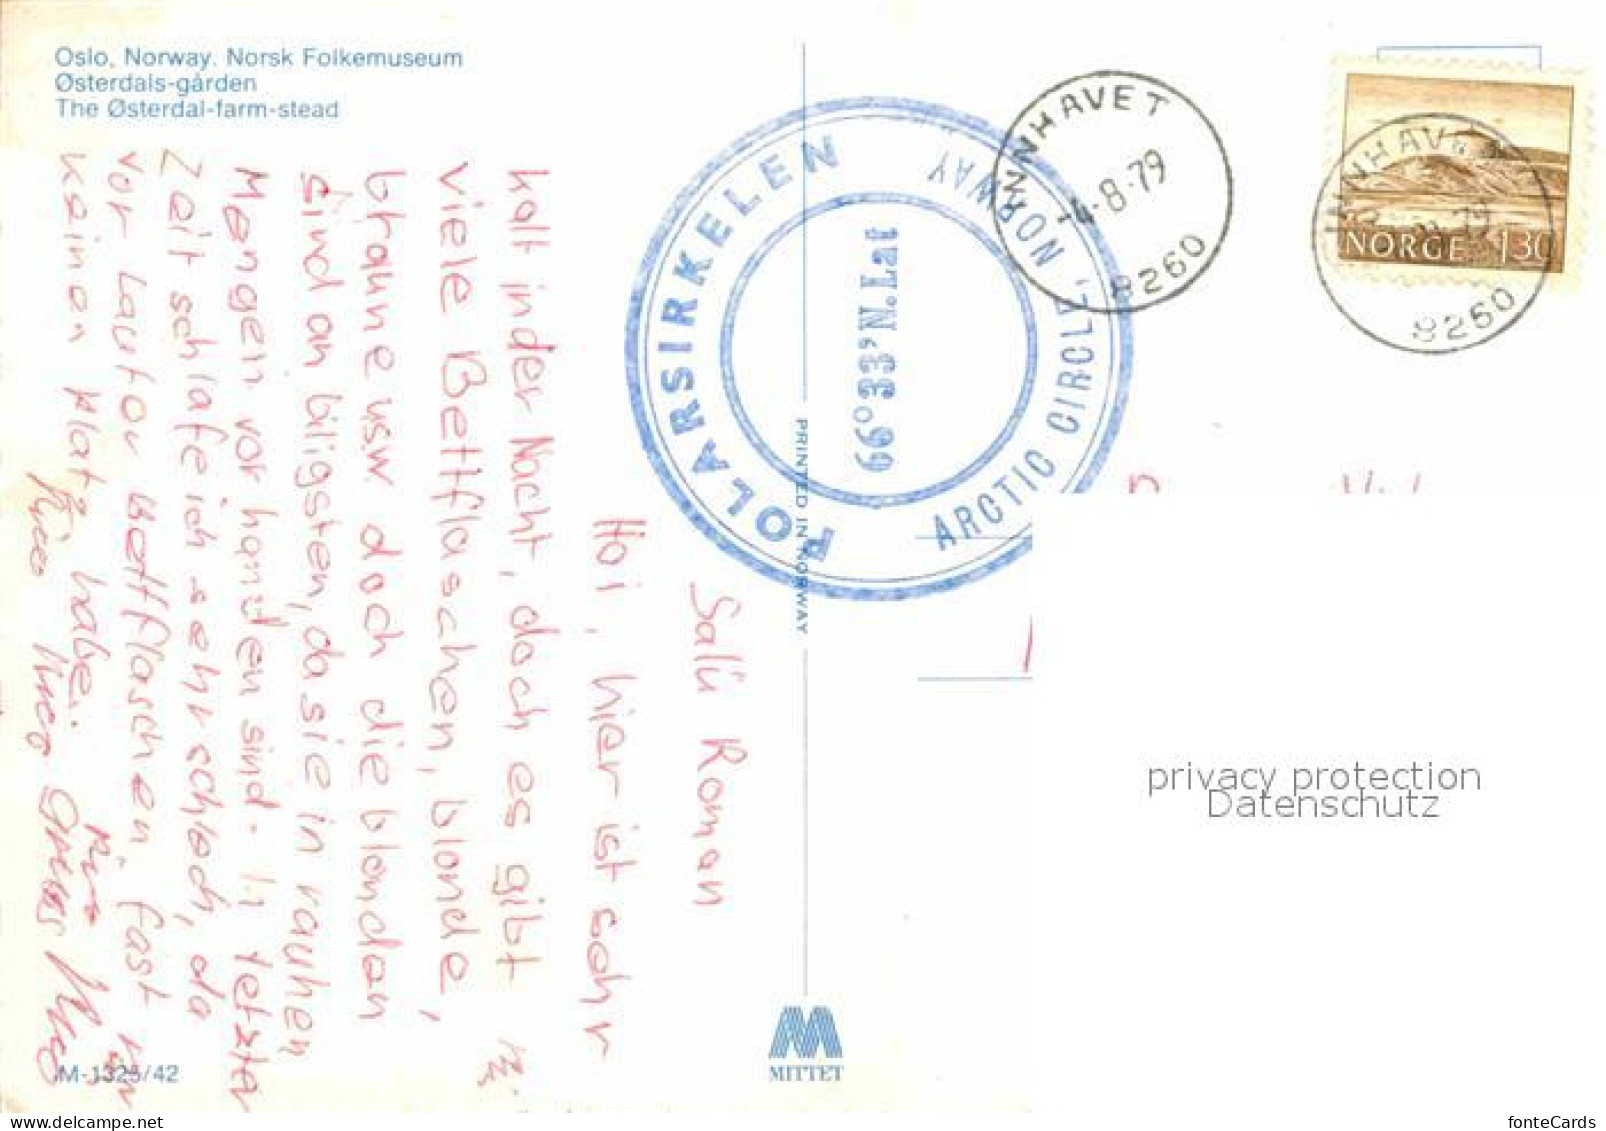 Oslo, Norway. Norsk Folkemuseum
Østerdals-gården
The Østerdal-farm-stead
POLARSIRKELEN
ARCTIC CIRCLE, NORWAY
66°33' N.Lat
INNHAVET
-4.-8.-79
8260
INNHAVET
79
8260
NORGE 130
PRINTED IN NORWAY
Salü Roman
Hoi, hier ist sehr
kalt in der Nacht, doch es gibt
viele Bettflaschen, blonde,
braune usw doch die blonden
sind an biligsten, da sie in rauhen
Mengen vor handen sind. In letzter
Zeit schlafe ich sehr schlech, da
vor lauter Bettflaschen fast
keinen Platz habe.
M-1325/42
MITTET
privacy protection
Datenschutz
fonteCards